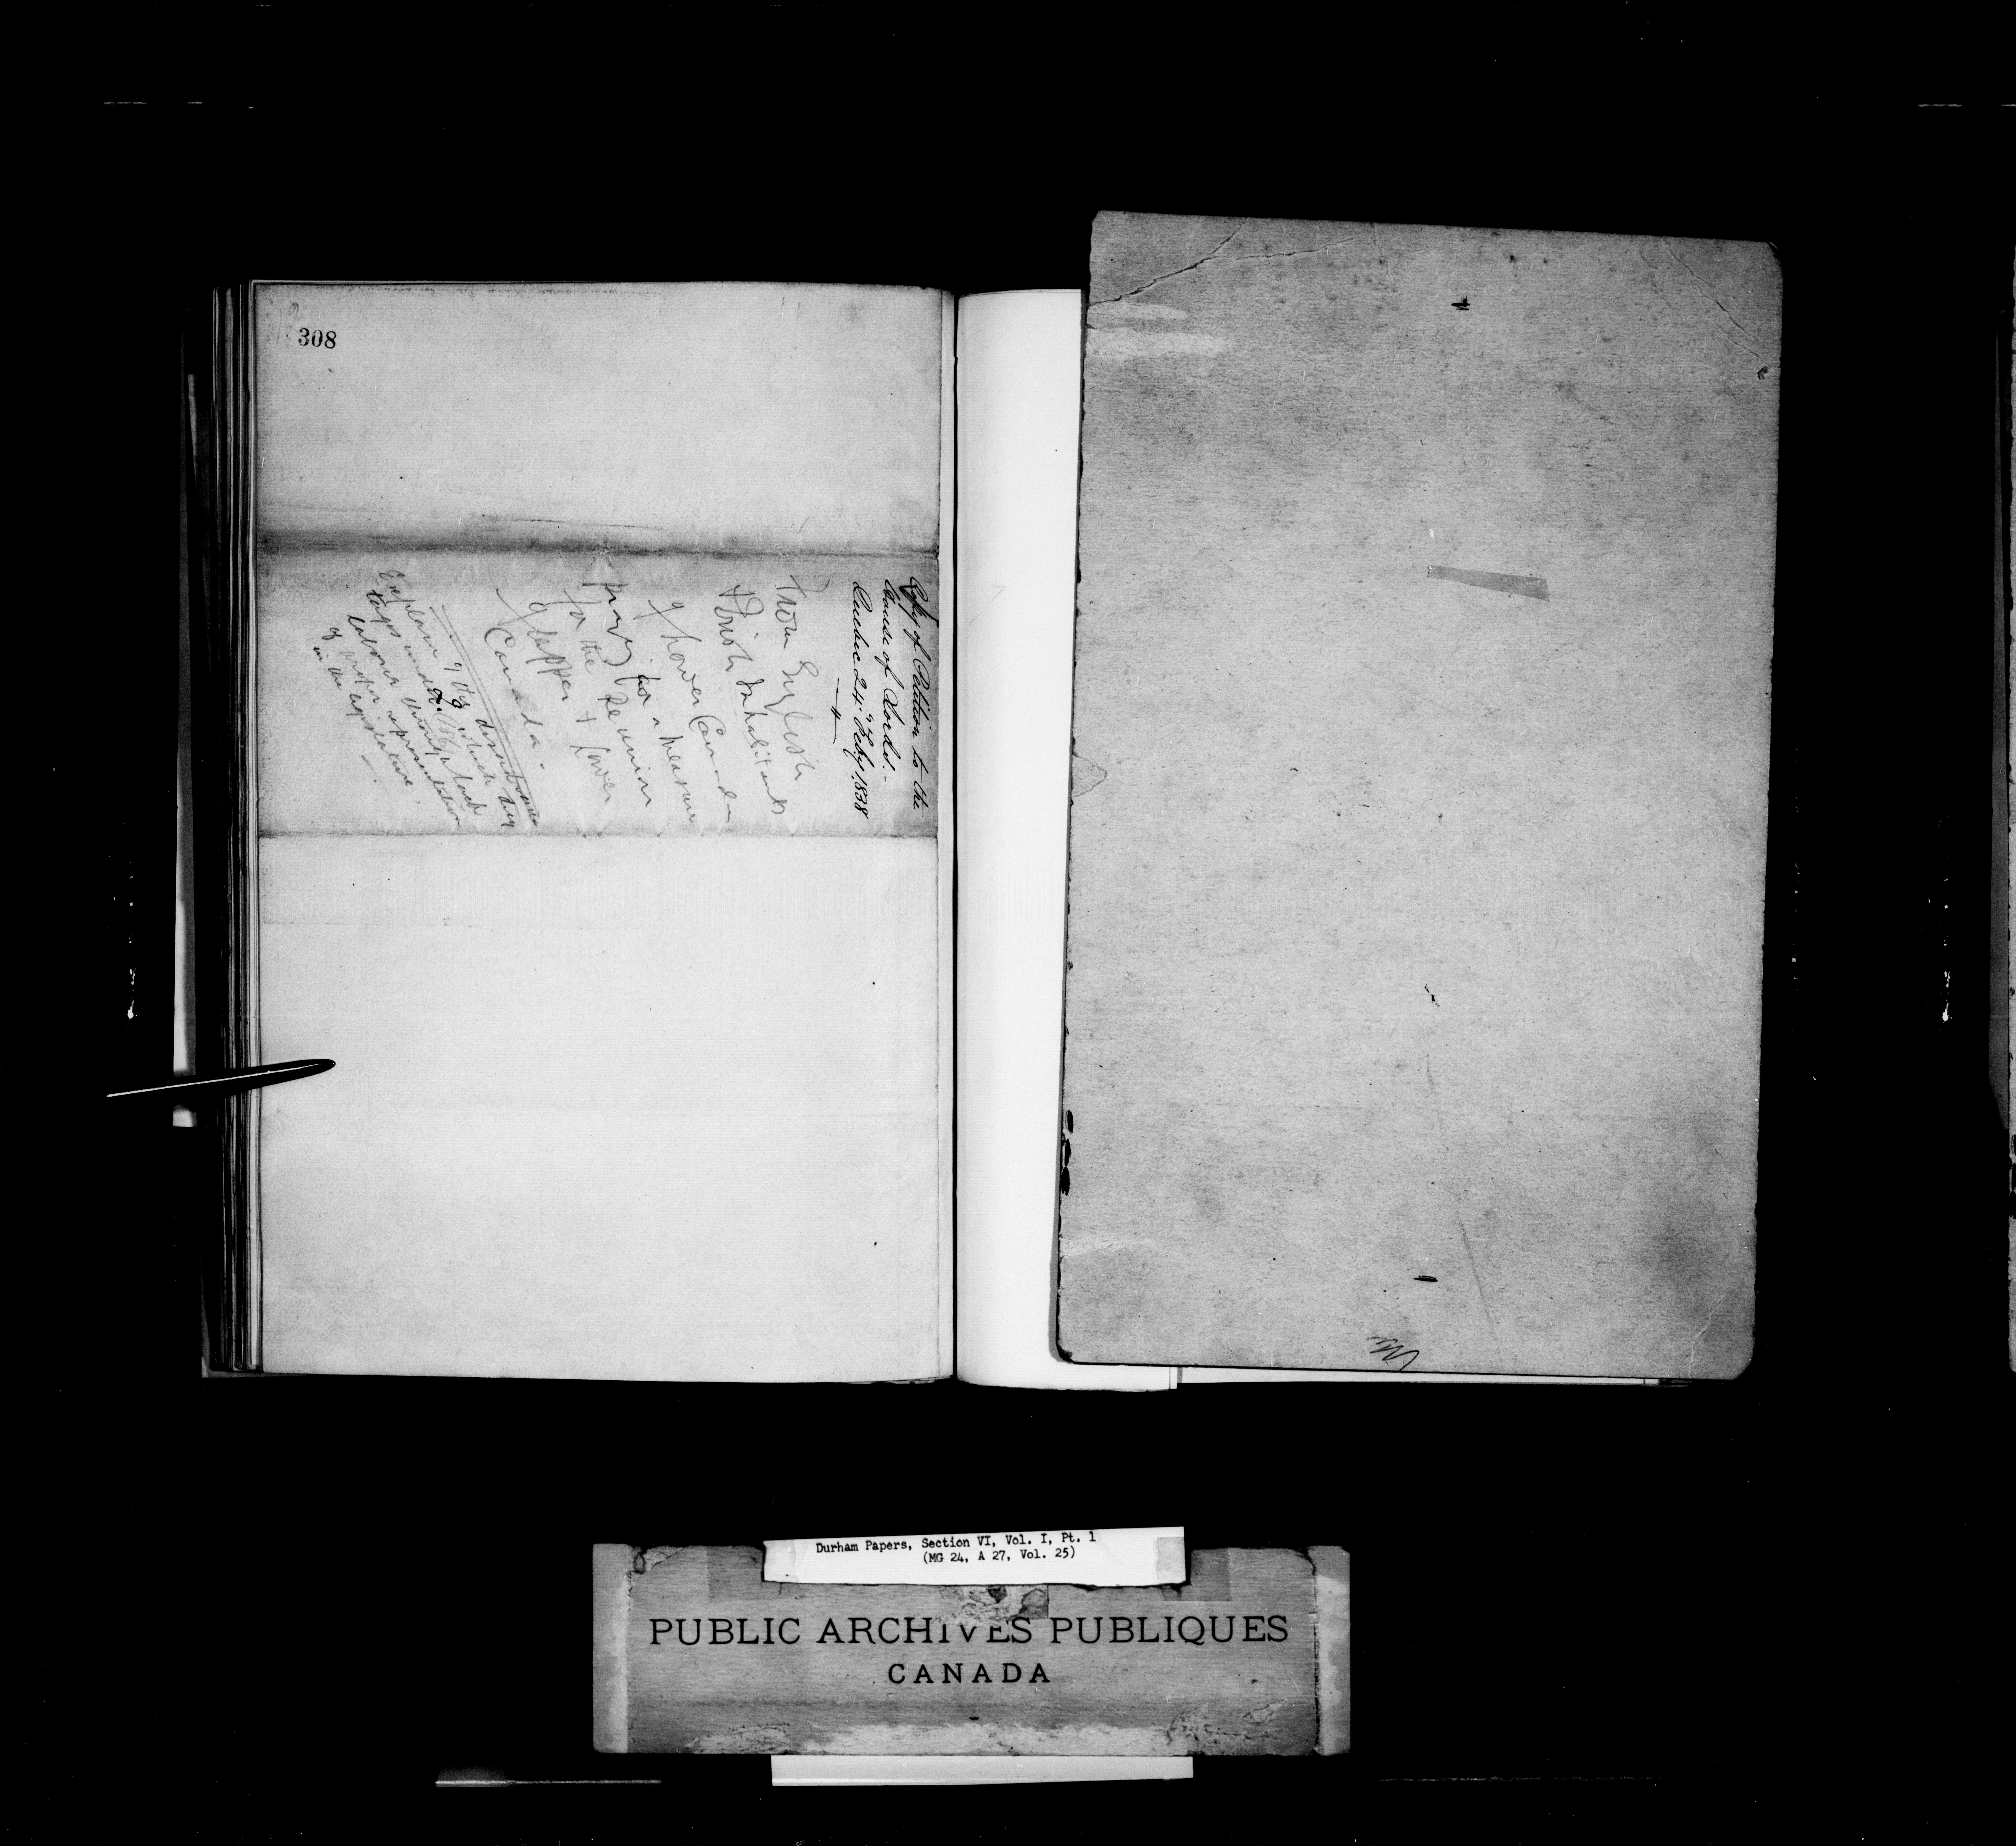 308
Copy of Petition to the
House of Lords.-
Quebec 24th Feby 1838
From English
& Irish Inhabitants
of Lower Canada
pray for a measure
for the Reunion
of Upper & Lower
Canada.
Explain of the disadvantages
under which they
labour through lack
of proper representation
in the Legislature.
Durham Papers, Section VI, Vol. I, Pt. 1
(MG 24, A 27, Vol. 25)
PUBLIC ARCHIVES PUBLIQUES
CANADA